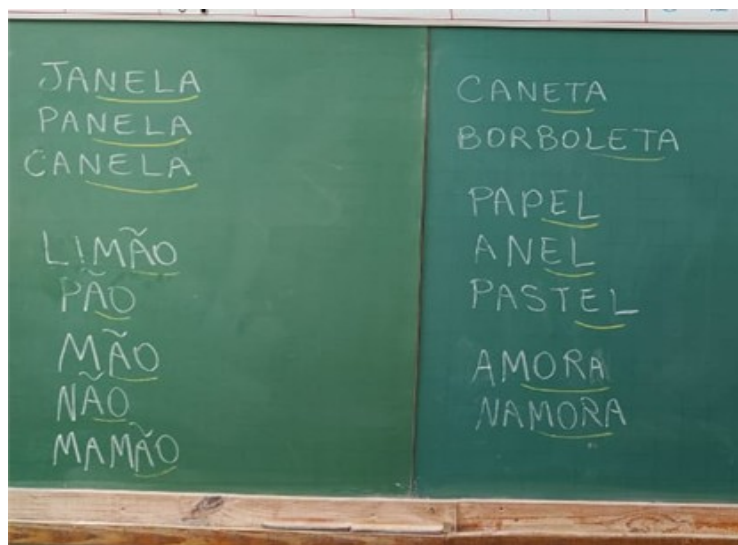 JANELA
PANELA
CANELA
LIMÃO
PÃO
MÃO
NÃO
MAMÃO
CANETA
BORBOLETA
PAPEL
ANEL
PASTEL
AMORA
NAMORA